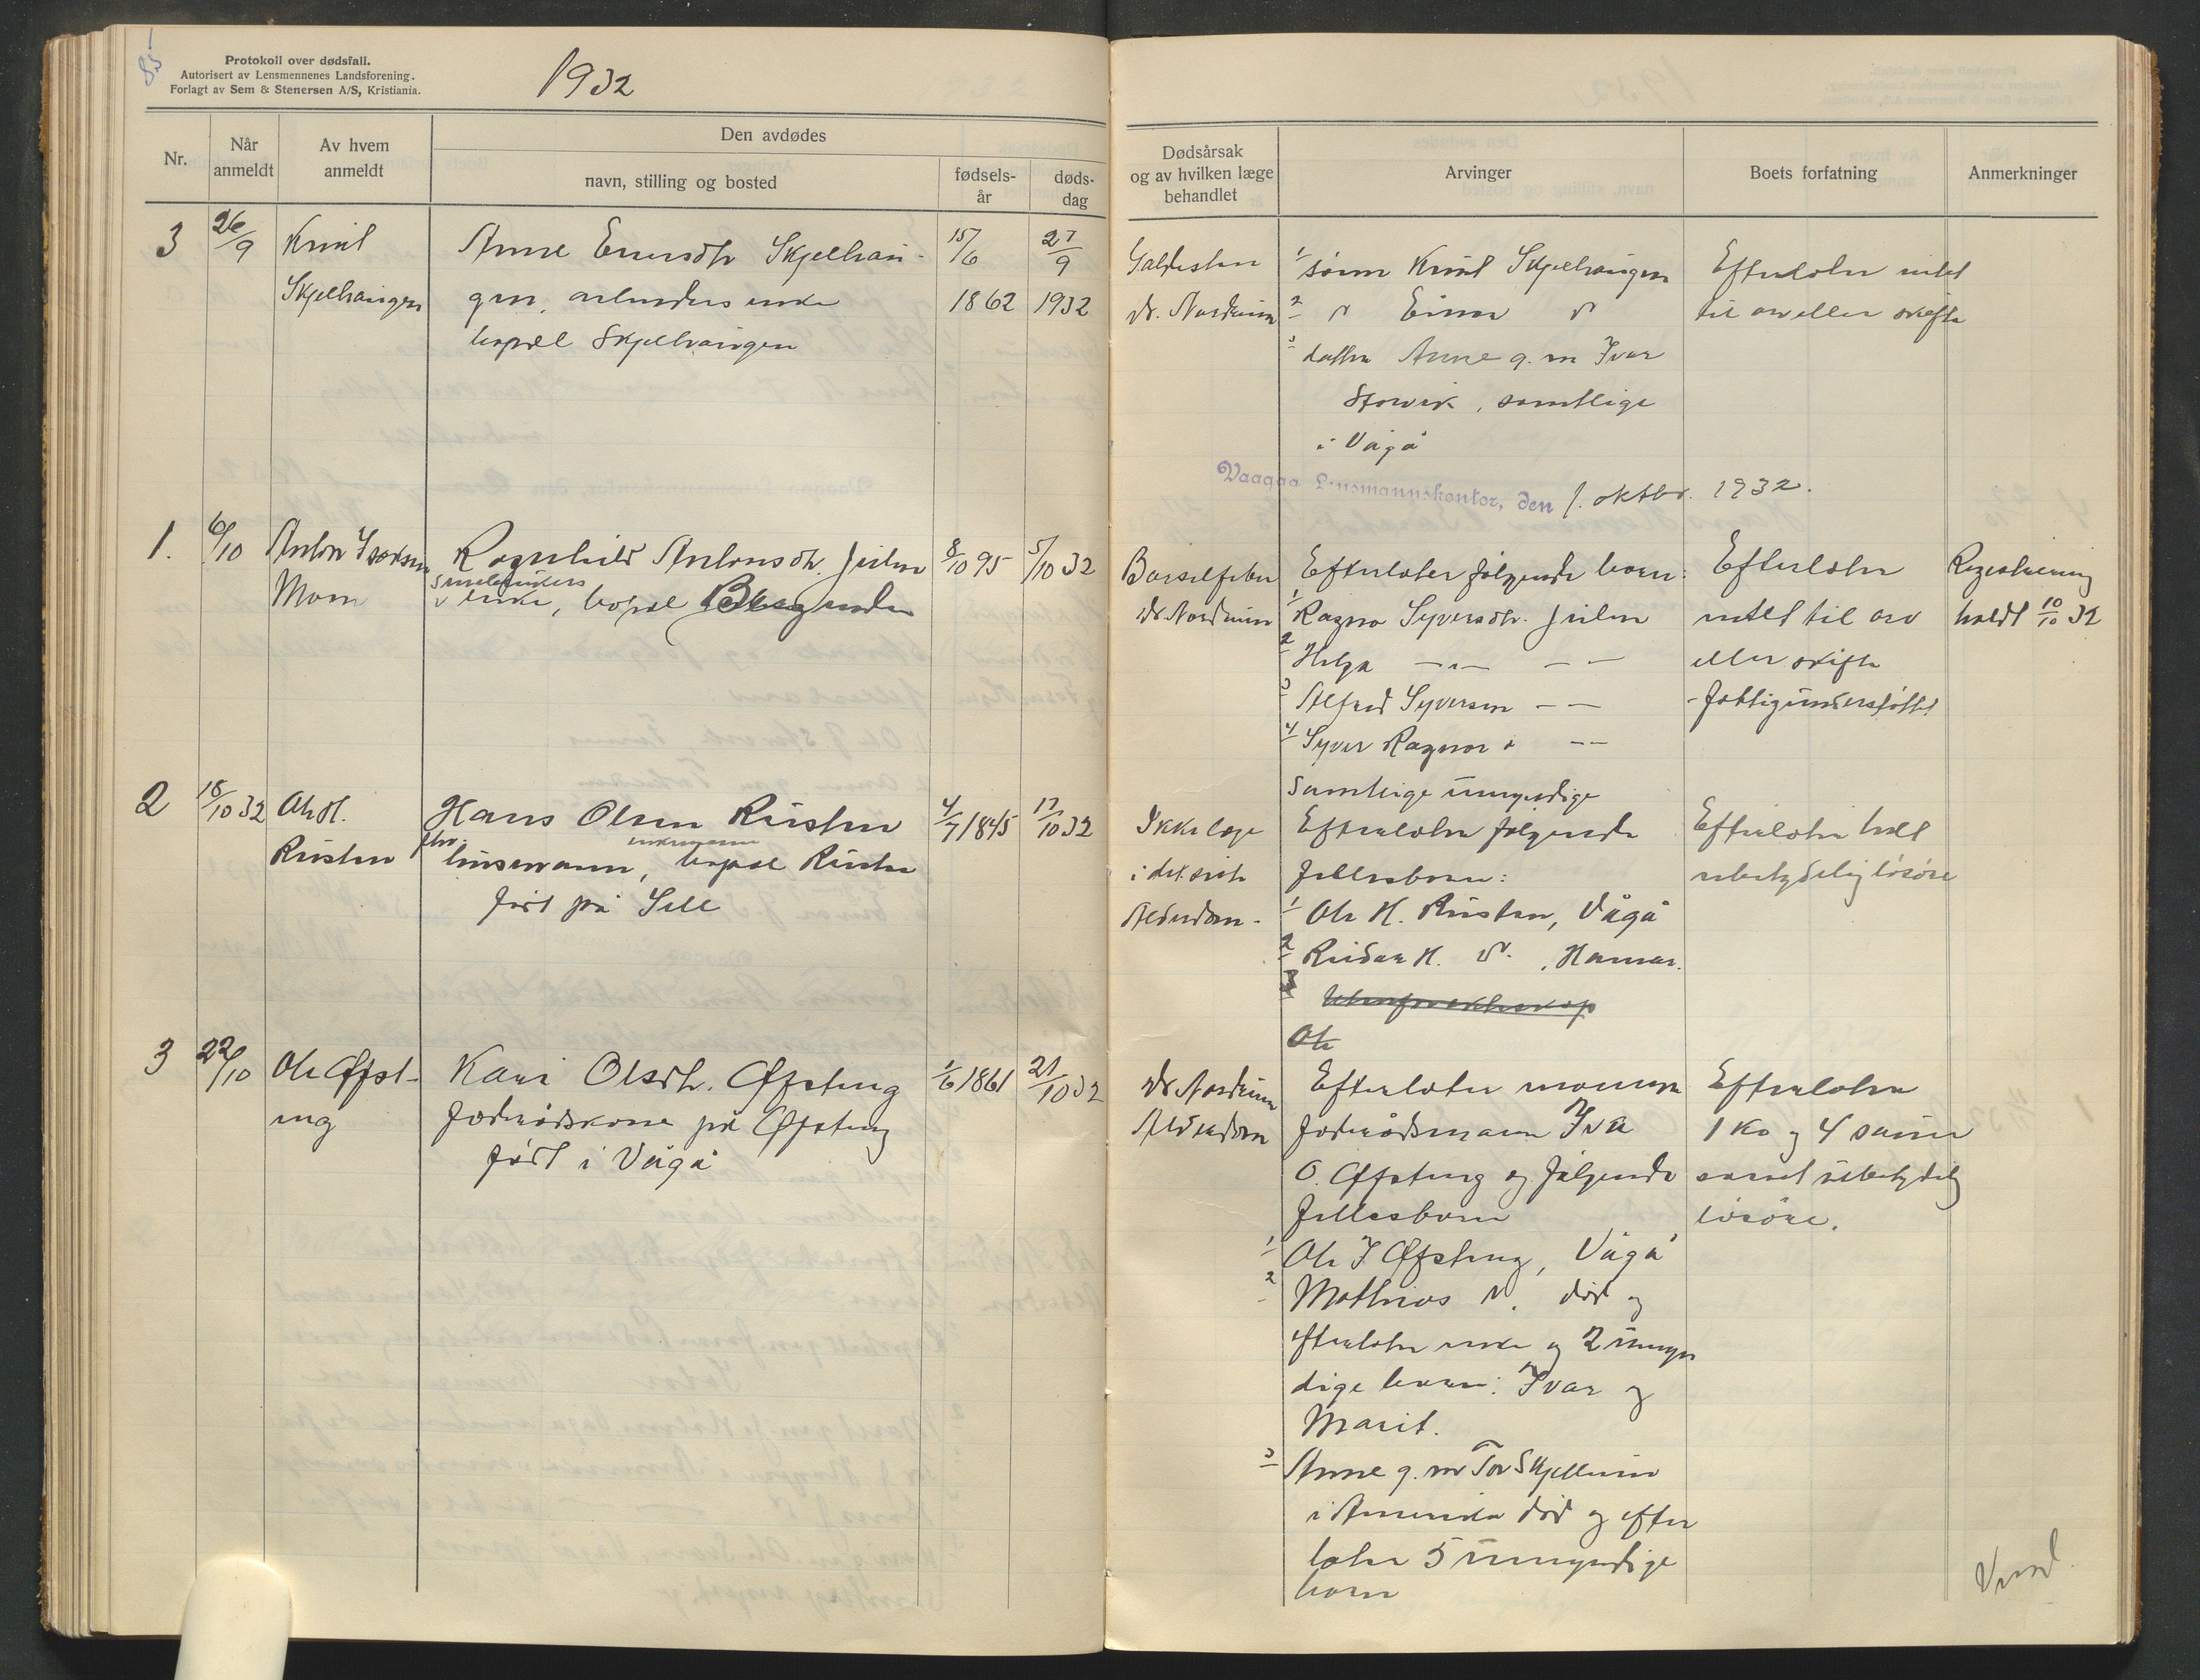 85
Protokoll over dødsfall.
Autorisert av Lensmennenes Landsforening.
Forlagt av Sem & Stenersen A/S, Kristiania.
1932
Nr.
Når anmeldt
Av hvem anmeldt
Den avdødes
navn, stilling og bosted
fødsels-år
døds-dag
Dødsårsak og av hvilken læge behandlet
Arvinger
Boets forfatning
Anmerkninger
3
26/9
Knut
Skjelhaugen
Anne Enersdtr Skjelhau-
gen, arbeiders enke
bopæl Skjelhaugen
15/6
1862
27/9
1932
Galdesten
dr. Nordrum
1 sønn Knut Skjelhaugen
2 " Einar "
3 datter Anne g. m Ivar
Storvik, samtlige
i Vågå
Efterlater intet
til arv eller skifte
Vaagaa Lensmannskontor, den 1. oktbr. 1932.
1.
6/10
Anton Isaksen
Moen
Ragnhild Antonsdtr.
enke, bopæl
8/10 95
5/10 32
Barselfeber
dr. Nordrum
Efterlater følgende barn:
1 Ragna Syversdtr.
2 Helga — " — — —
3 Alfred Syversen — —
4 Syver Ragnar " — —
Samtlige umyndige
Efterlater
intet til arv
eller skifte
- fattigunderstøttet
Registrering
holdt 10/10 32
2
18/10 32
Ole H.
Rusten
Hans Olsen Rusten
fhv. enkemann
lensmann, bopæl Rusten
født på Sell
4/7 1845
17/10 32
Ikke læge
i det siste
Alderdom -
Efterlater følgende
fellesbarn:
1 Ole H. Rusten, Vågå
2 Reidar H. ", Hamar.
3
Ole
Efterlater helt
ubetydelig løsøre
3
22/10
Ole Øfst-
eng
Kari Olsdtr. Øfsteng
føderådskone på Øfsteng
født i Vågå
1/6 1861
21/10 32
dr. Nordrum
Alderdom
Efterlater mannen
føderådsmann Iver
O. Øfsteng og følgende
fellesbarn
1 Ole I Øfsteng, Vågå
2 Mathias ". død og
efterlater enke og 2 umyn
dige barn: Ivar og
Marit.
3 Anne g. m Tor Skjellum
i Amerika død og efter
later 5 umyndige
barn
Efterlater
1 ko og 4 sauer
samt ubetydelig
løsøre.
Vend.